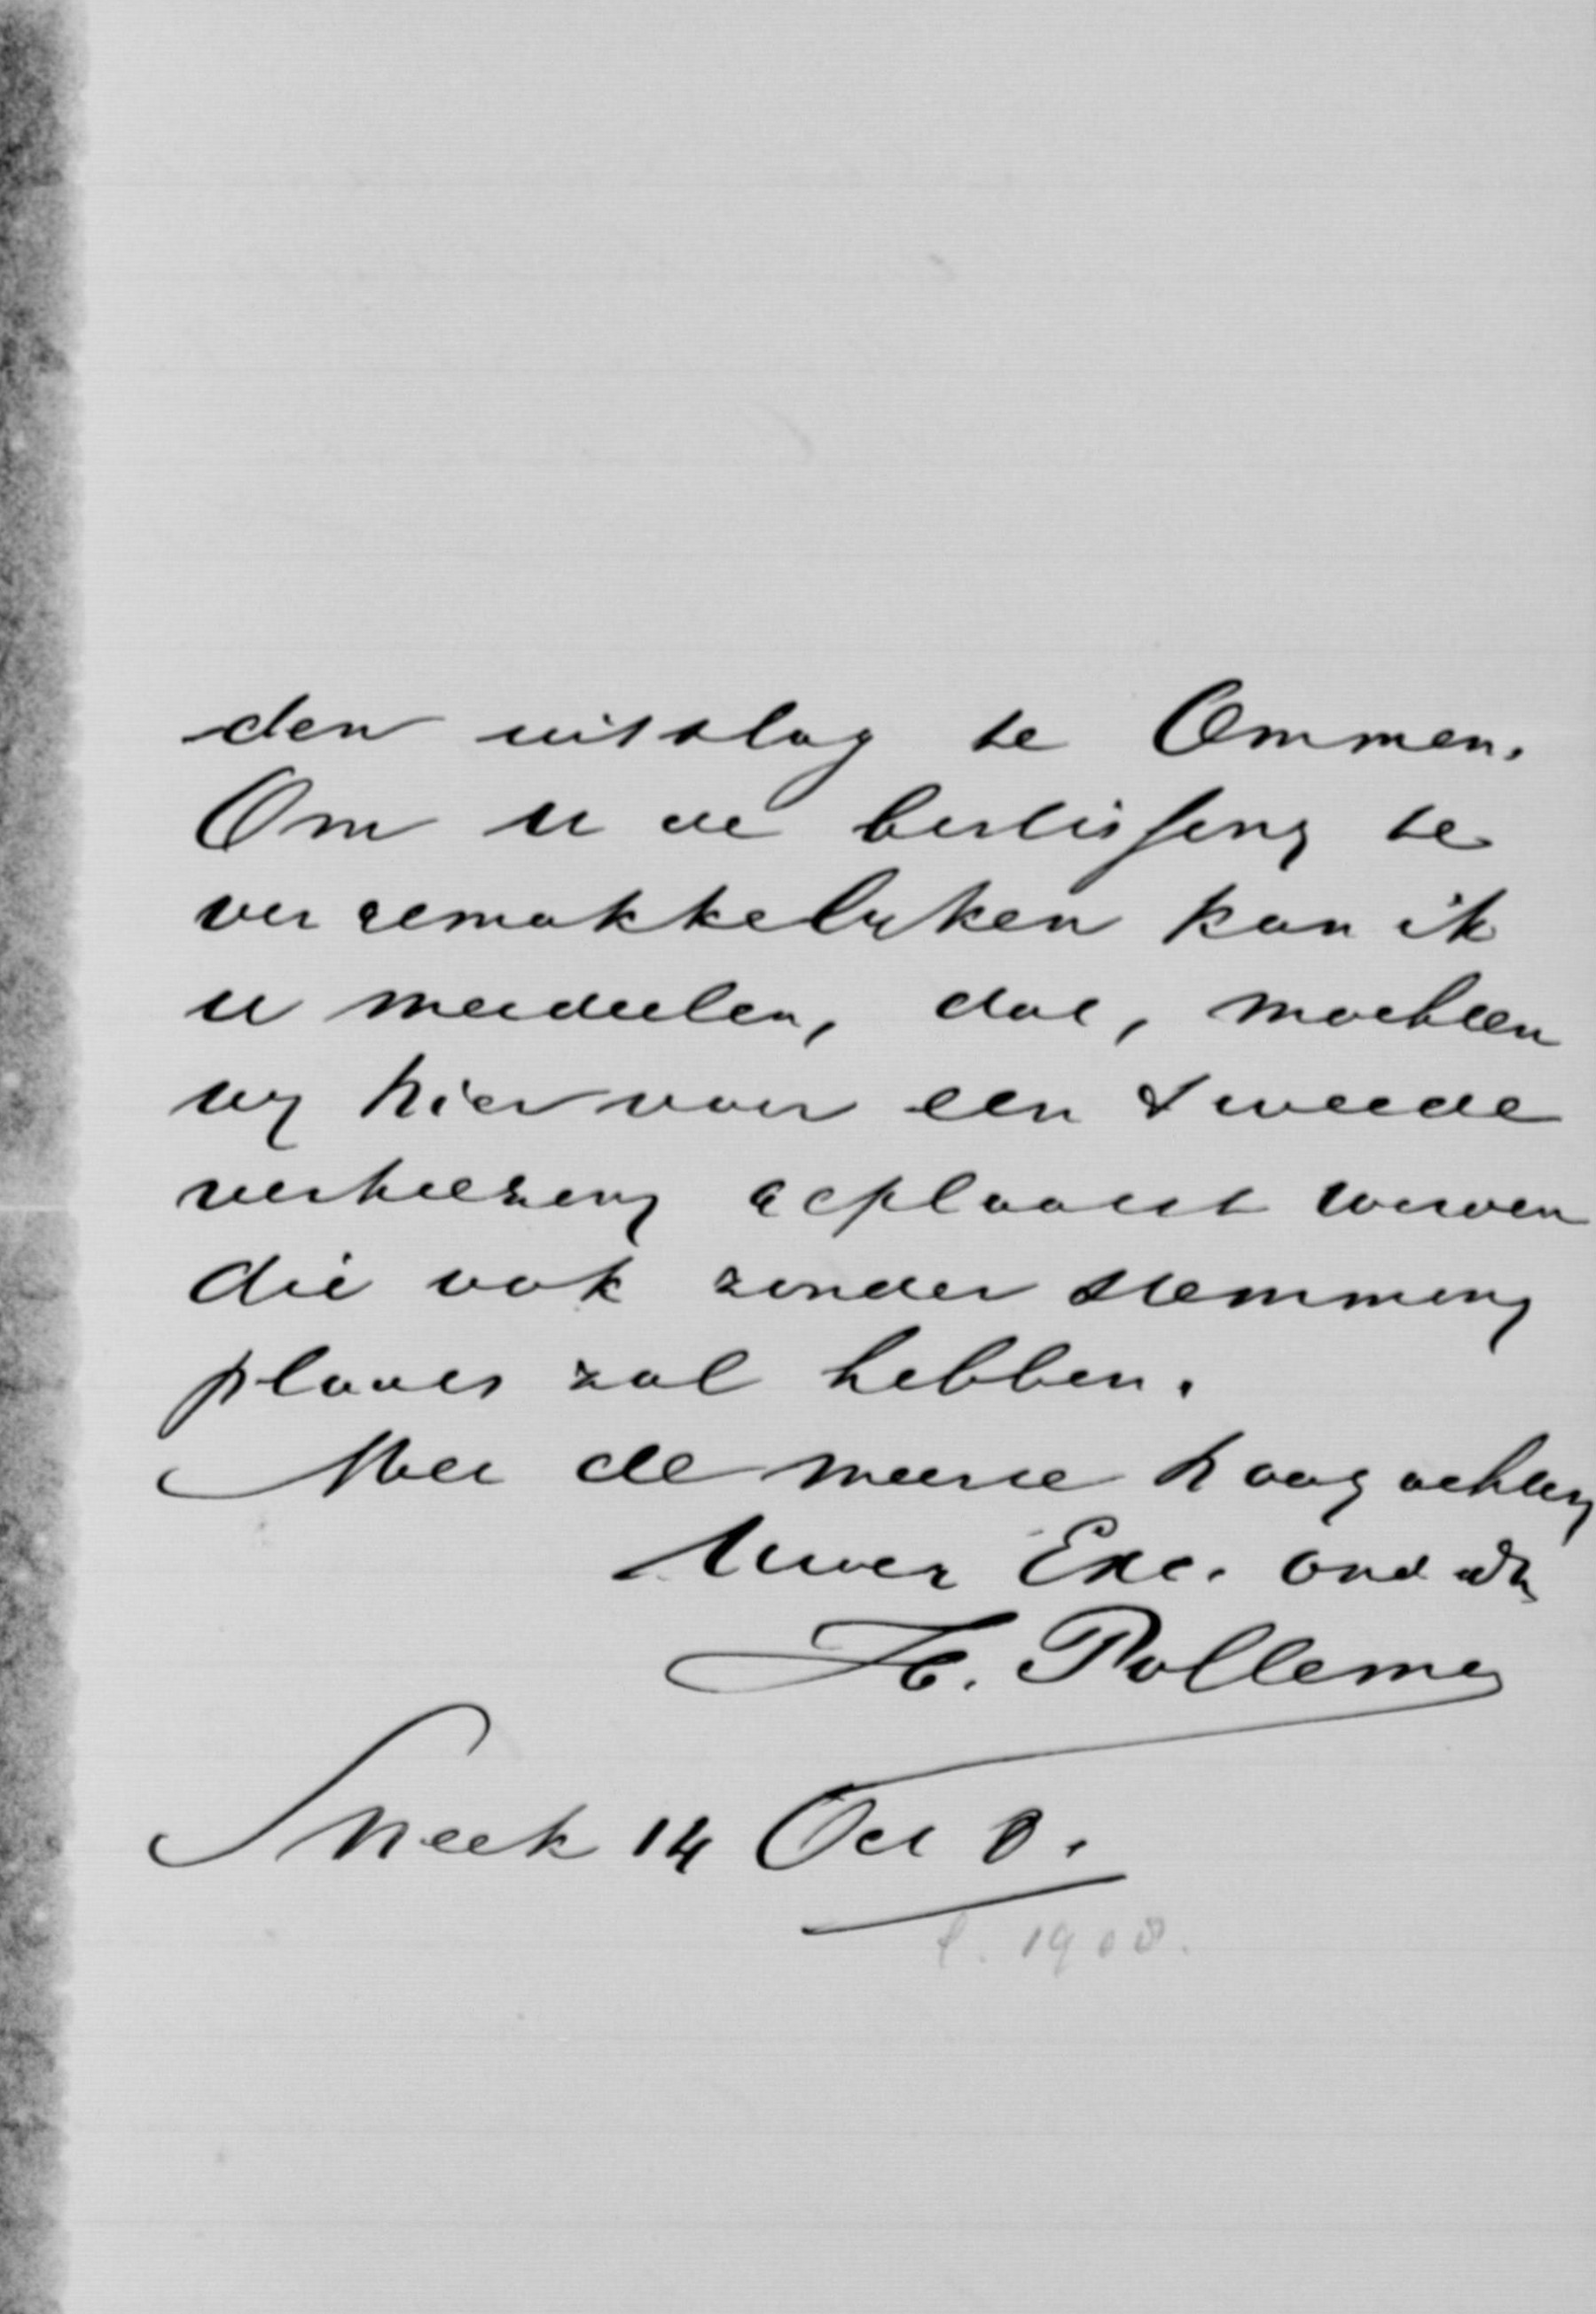 den uitslag te Ommen.
Om u de beslissing te
vergemakkelyken kan ik
u meedeelen, dat, mochten
wy hier voor een tweede
verkiezing geplaatst worden
die ook zonder stemming
plaats zal hebben.
Met de meeste hoogachting
Uwer Exc. ond. dr
H. Pollema
Sneek 14 Oct 8.
1908.